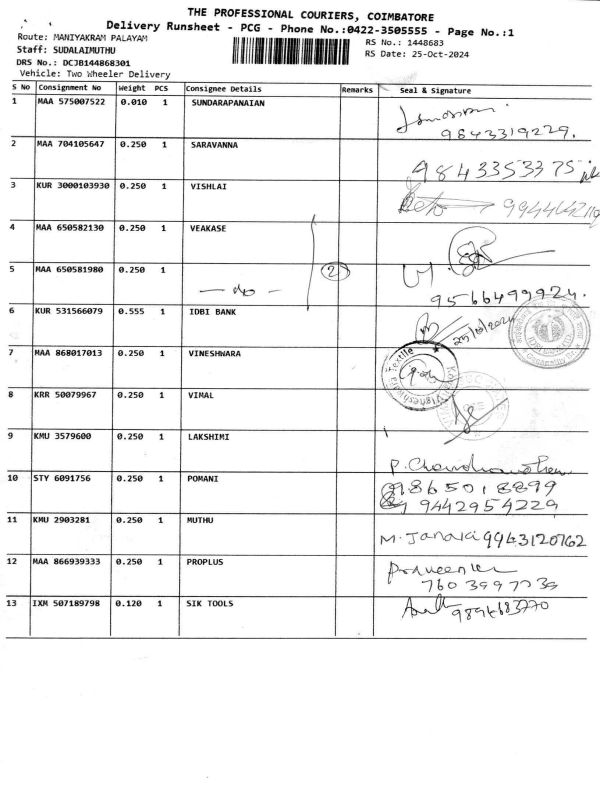 THE PROFESSIONAL COURIERS, COIMBATORE
Delivery Runsheet - PCG - Phone No.:0422-3505555 - Page No.:1
Route: MANIYAKRAM PALAYAM
RS No.: 1448683
Staff: SUDALAIMUTHU
RS Date: 25-Oct-2024
DRS No.: DCJB144868301
Vehicle: Two Wheeler Delivery
S No Consignment No Weight PCS Consignee Details Remarks Seal & Signature
1 MAA 575007522 0.010 1 SUNDARAPANAIAN
9843319229.
2 MAA 704105647 0.250 1 SARAVANNA
9843353375
3 KUR 3000103930 0.250 1 VISHLAI
4 MAA 650582130 0.250 1 VEAKASE
5 MAA 650581980 0.250 1
— do — 2
9566499924.
6 KUR 531566079 0.555 1 IDBI BANK
25/10/2024
7 MAA 868017013 0.250 1 VINESHWARA
Textile
8 KRR 50079967 0.250 1 VIMAL
9 KMU 3579600 0.250 1 LAKSHIMI
10 STY 6091756 0.250 1 POMANI
865018899
9442954229
11 KMU 2903281 0.250 1 MUTHU
M. Janaki 9943120762
12 MAA 866939333 0.250 1 PROPLUS
13 IXM 507189798 0.120 1 SIK TOOLS
9894683770